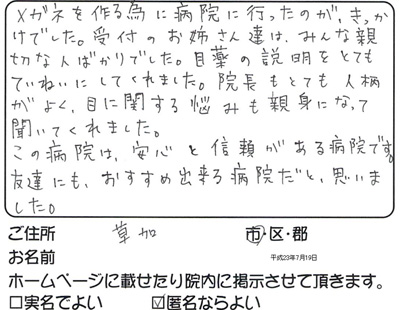 メガネを作る為に病院に行ったのが、きっか
けでした。受付のお姉さん達は、みんな親
切な人ばかりでした。目薬の説明をとても
ていねいにしてくれました。院長もとても人柄
がよく、目に関する悩みも親身になって
聞いてくれました。
この病院は、安心と信頼がある病院です。
友達にも、おすすめ出来る病院だと、思いま
した。
ご住所 草加 市・区・郡
お名前 平成23年7月19日
ホームページに載せたり院内に掲示させて頂きます。
□実名でよい ☑匿名ならよい